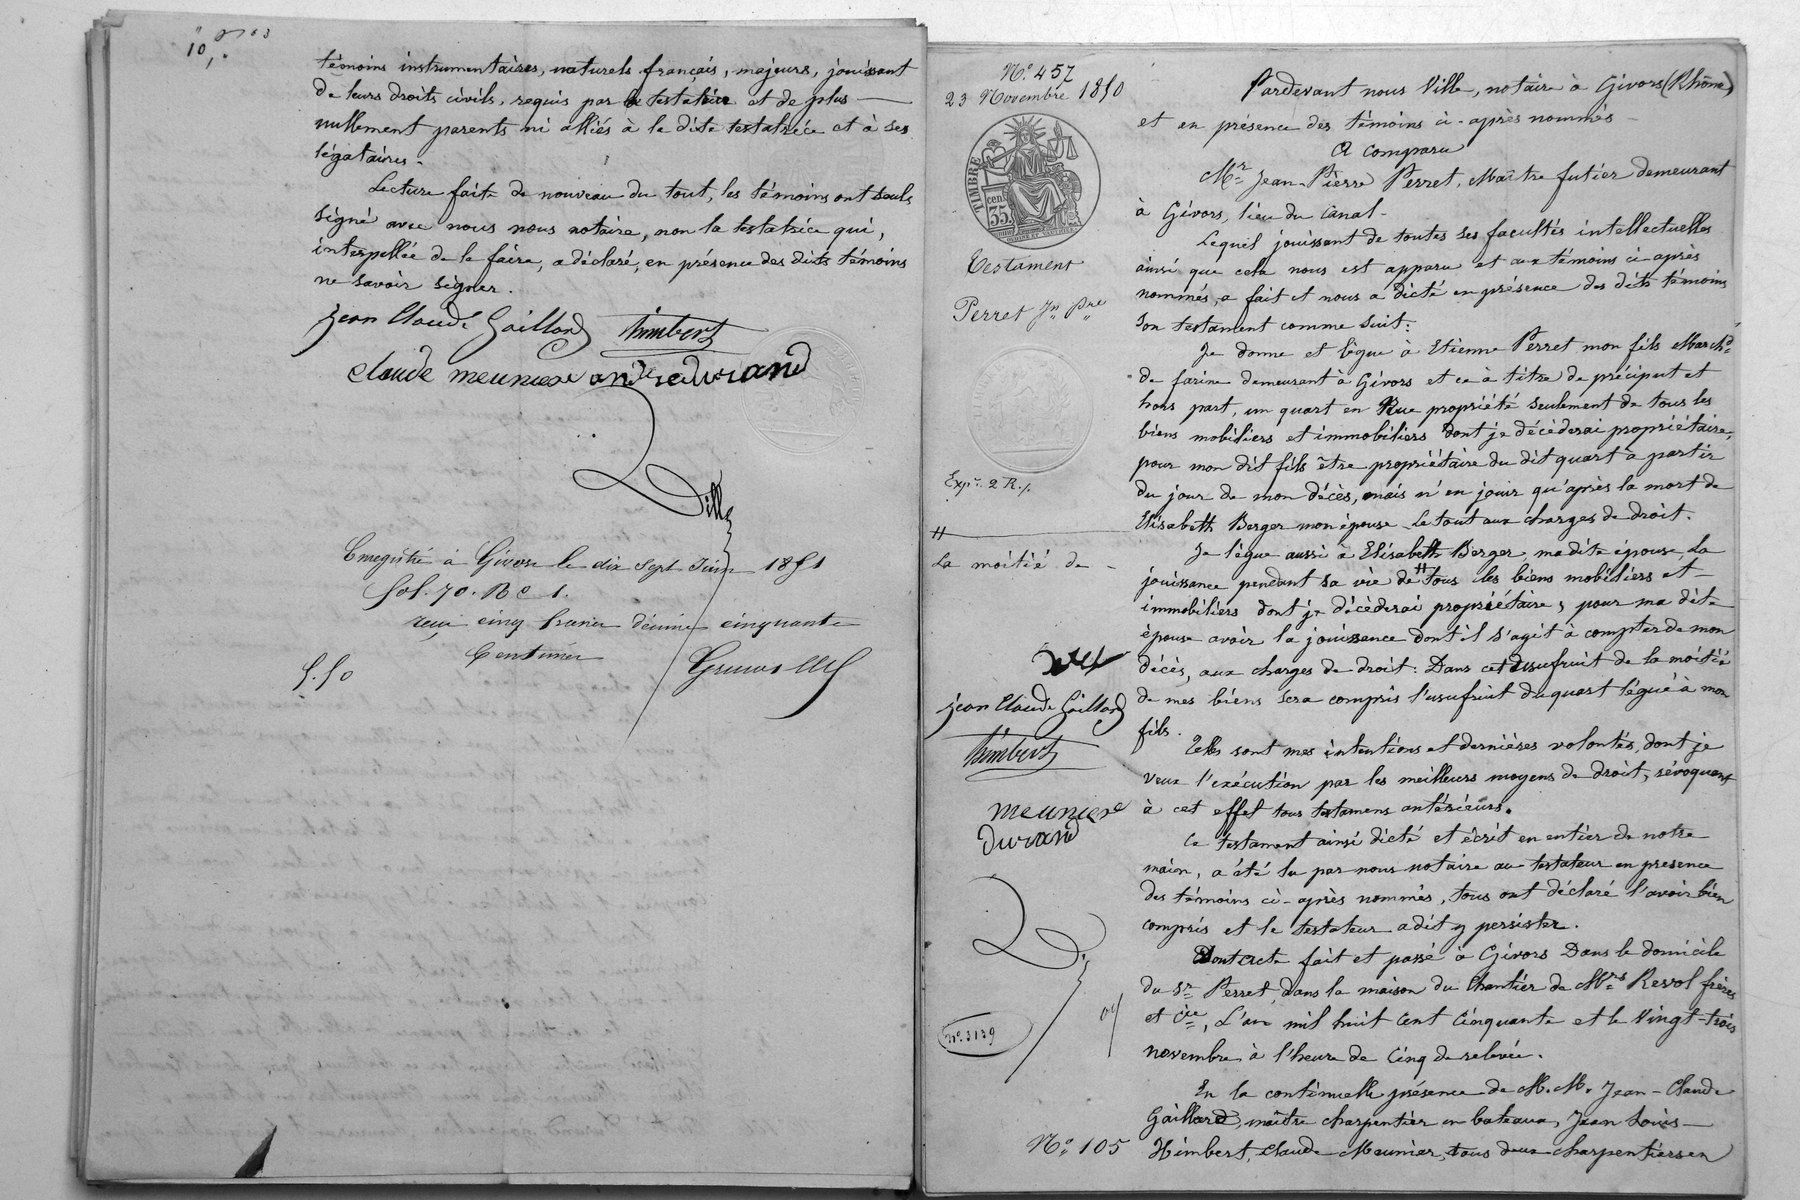 10
témoins instrumentaires, naturels français, majeurs, jouissant
de leurs droits civils, requis par la testatrice et de plus —
nullement parents ni alliés à la dite testatrice et à ses
légataires.
Lecture faite de nouveau du tout, les témoins ont seuls
signé avec nous nous notaire, non la testatrice qui,
interpellée de le faire, a déclaré, en présence des dits témoins
ne savoir signer.
jean Claude Gaillard himbert
claude meuniere andre durand
Ville
Enregistré à Givors le dix sept Juin 1851
fol. 70. R C 1.
reçu cinq francs décime cinquante
Centimes
5.50
No 457
23 Novembre 1850
TIMBRE
35 cen
Testament
Perret Jn Pre
Expn 2 R.
La moitié de -
jean Claude Gaillard
himbert
meuniere
durand
No 3139
No 105
Pardevant nous Ville, notaire à Givors (Rhône)
et en présence des témoins ci-après nommés —
A comparu
Mr Jean-Pierre Perret, Maître futier demeurant
à Givors, lieu du Canal.
Lequel jouissant de toutes ses facultés intellectuelles
ainsi que cela nous est apparu et aux témoins ci-après
nommés, a fait et nous a dicté en présence des dits témoins
son testament comme suit:
Je donne et lègue à Etienne Perret mon fils Marchd
de farine demeurant à Givors et ce à titre de préciput et
hors part, un quart en Nue propriété seulement de tous les
biens mobiliers et immobiliers dont je décéderai propriétaire,
pour mon dit fils être propriétaire du dit quart à partir
du jour de mon décès, mais n'en jouir qu'après la mort de
Elisabeth Berger mon épouse le tout aux charges de droit.
Je lègue aussi à Elisabeth Berger, ma dite épouse la
jouissance pendant sa vie de tous les biens mobiliers et —
immobiliers dont je décéderai propriétaire, pour ma dite
épouse avoir la jouissance dont il s'agit à compter de mon
décès, aux charges de droit: Dans cet usufruit de la moitié
de mes biens sera compris l'usufruit du quart légué à mon
fils.
Telles sont mes intentions et dernières volontés, dont je
veux l'exécution par les meilleurs moyens de droit, révoquant
à cet effet tous testamens antérieurs.
Ce testament ainsi dicté et écrit en entier de notre
main, a été lu par nous notaire au testateur en presence
des témoins ci-après nommés, tous ont déclaré l'avoir bien
compris et le testateur a dit y persister.
Dont acte fait et passé à Givors Dans le domicile
du Sr Perret, dans la maison du Chantier de Mrs Revol frères
et Cie, L'an mil huit cent Cinquante et le Vingt-trois
novembre à l'heure de Cinq de relevée.
En la continuelle présence de M.M. Jean-Claude
Gaillard, maître charpentier en bateaux, Jean Louis —
Himbert, Claude Meunier, tous deux charpentiers en